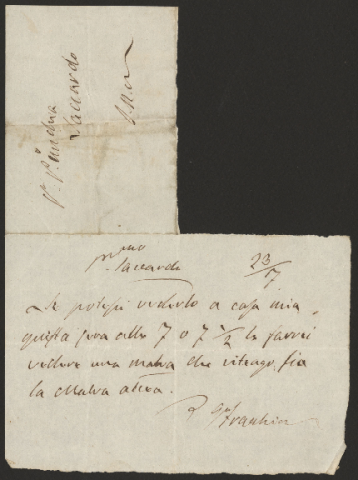 Saccardo
S.R.M.
Saccardo
23/7
Se potessi vederlo a casa mia,
questa sera alle 7 o 7 1/2 le farei
vedere una malva che ritengo sia
la Malva alcea.